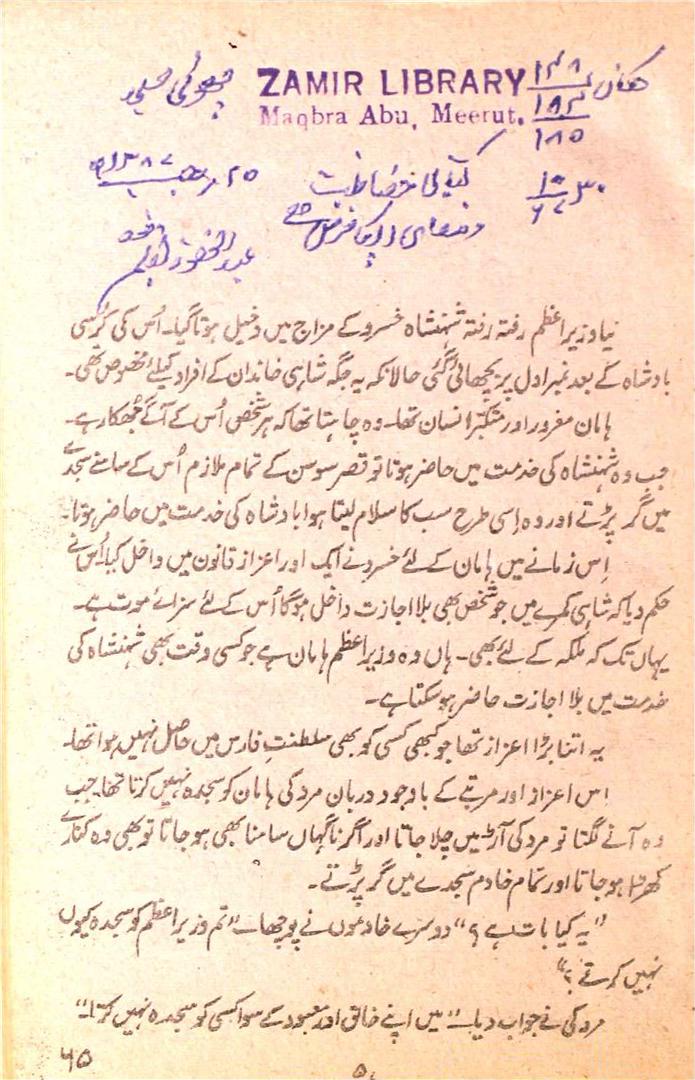 ZAMIR LIBRARY
Maqbra Abu, Meerut.
۱۴۸
۱۸۴
۱۸۵
کتاب کی حفاظت
وصفائی آپ کا فرض ہے
نیا وزیراعظم رفتہ رفتہ شہنشاہ خسرو کے مزاج میں دخیل ہوتا گیا۔ اُس کی کُرسی
بادشاہ کے بعد نمبر اول پر بچھائی گئی حالانکہ یہ جگہ شاہی خاندان کے افراد کیلئے مخصوص تھی۔
ہامان مغرور اور متکبّر انسان تھا۔ وہ چاہتا تھا کہ ہر شخص اُس کے آگے جُھکا رہے۔
جب وہ شہنشاہ کی خدمت میں حاضر ہوتا تو قصر سوسن کے تمام ملازم اُس کے سامنے سجدے
میں گر پڑتے اور وہ اِسی طرح سب کا سلام لیتا ہوا بادشاہ کی خدمت میں حاضر ہوتا۔
اِس زمانے میں ہامان کے لئے خسرو نے ایک اور اعزاز قانون میں داخل کیا۔ اُس نے
حکم دیا کہ شاہی کمرے میں جو شخص بھی بلا اجازت داخل ہوگا اُس کے لئے سزائے موت ہے۔
یہاں تک کہ ملکہ کے لئے بھی۔ ہاں وہ وزیراعظم ہامان ہے جو کسی وقت بھی شہنشاہ کی
خدمت میں بلا اجازت حاضر ہو سکتا ہے۔
یہ اتنا بڑا اعزاز تھا جو کبھی کسی کو بھی سلطنتِ فارس میں حاصل نہیں ہوا تھا۔
اِس اعزاز اور مرتبے کے باوجود دربان مردکی ہامان کو سجدہ نہیں کرتا تھا۔ جب
وہ آنے لگتا تو مردکی آڑ میں چلا جاتا اور اگر ناگہاں سامنا بھی ہو جاتا تو بھی وہ کنارے
کھڑا ہو جاتا اور تمام خادم سجدے میں گر پڑتے۔
”یہ کیا بات ہے؟“ دوسرے خادموں نے پوچھا۔ ”تم وزیراعظم کو سجدہ کیوں
نہیں کرتے؟“
مردکی نے جواب دیا۔ ”میں اپنے خالق اور معبود کے سوا کسی کو سجدہ نہیں کرتا۔“
۶۵